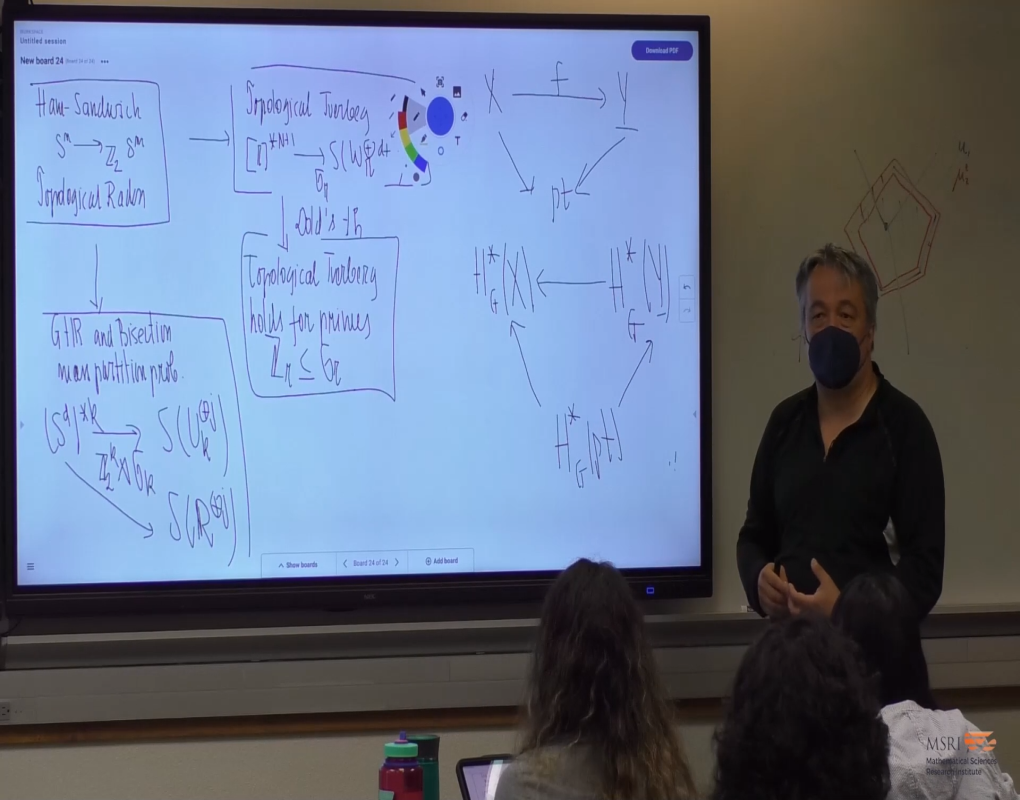 Untitled session
New board 24
Board 24 of 24
Download PDF
Ham-Sandwich
S^m → Z_2 S^m
Topological Radon
Topological Tverberg
[r]^{*N+1} → S(W_r^{⊕ d+1})
Dold's th
Topological Tverberg
holds for primes
Z_r ≤ G_r
GHR and Bisection
mass partition prob.
(S^d)^{*k} → S(U_k^{⊕j})
Z_2^k ⋊ G_k
S(R^{⊕j})
X f Y
pt
H_G^*(X) ← H_G^*(Y)
H_G^*(pt)
Show boards
Board 24 of 24
Add board
NEC
MSRI
Mathematical Sciences
Research Institute